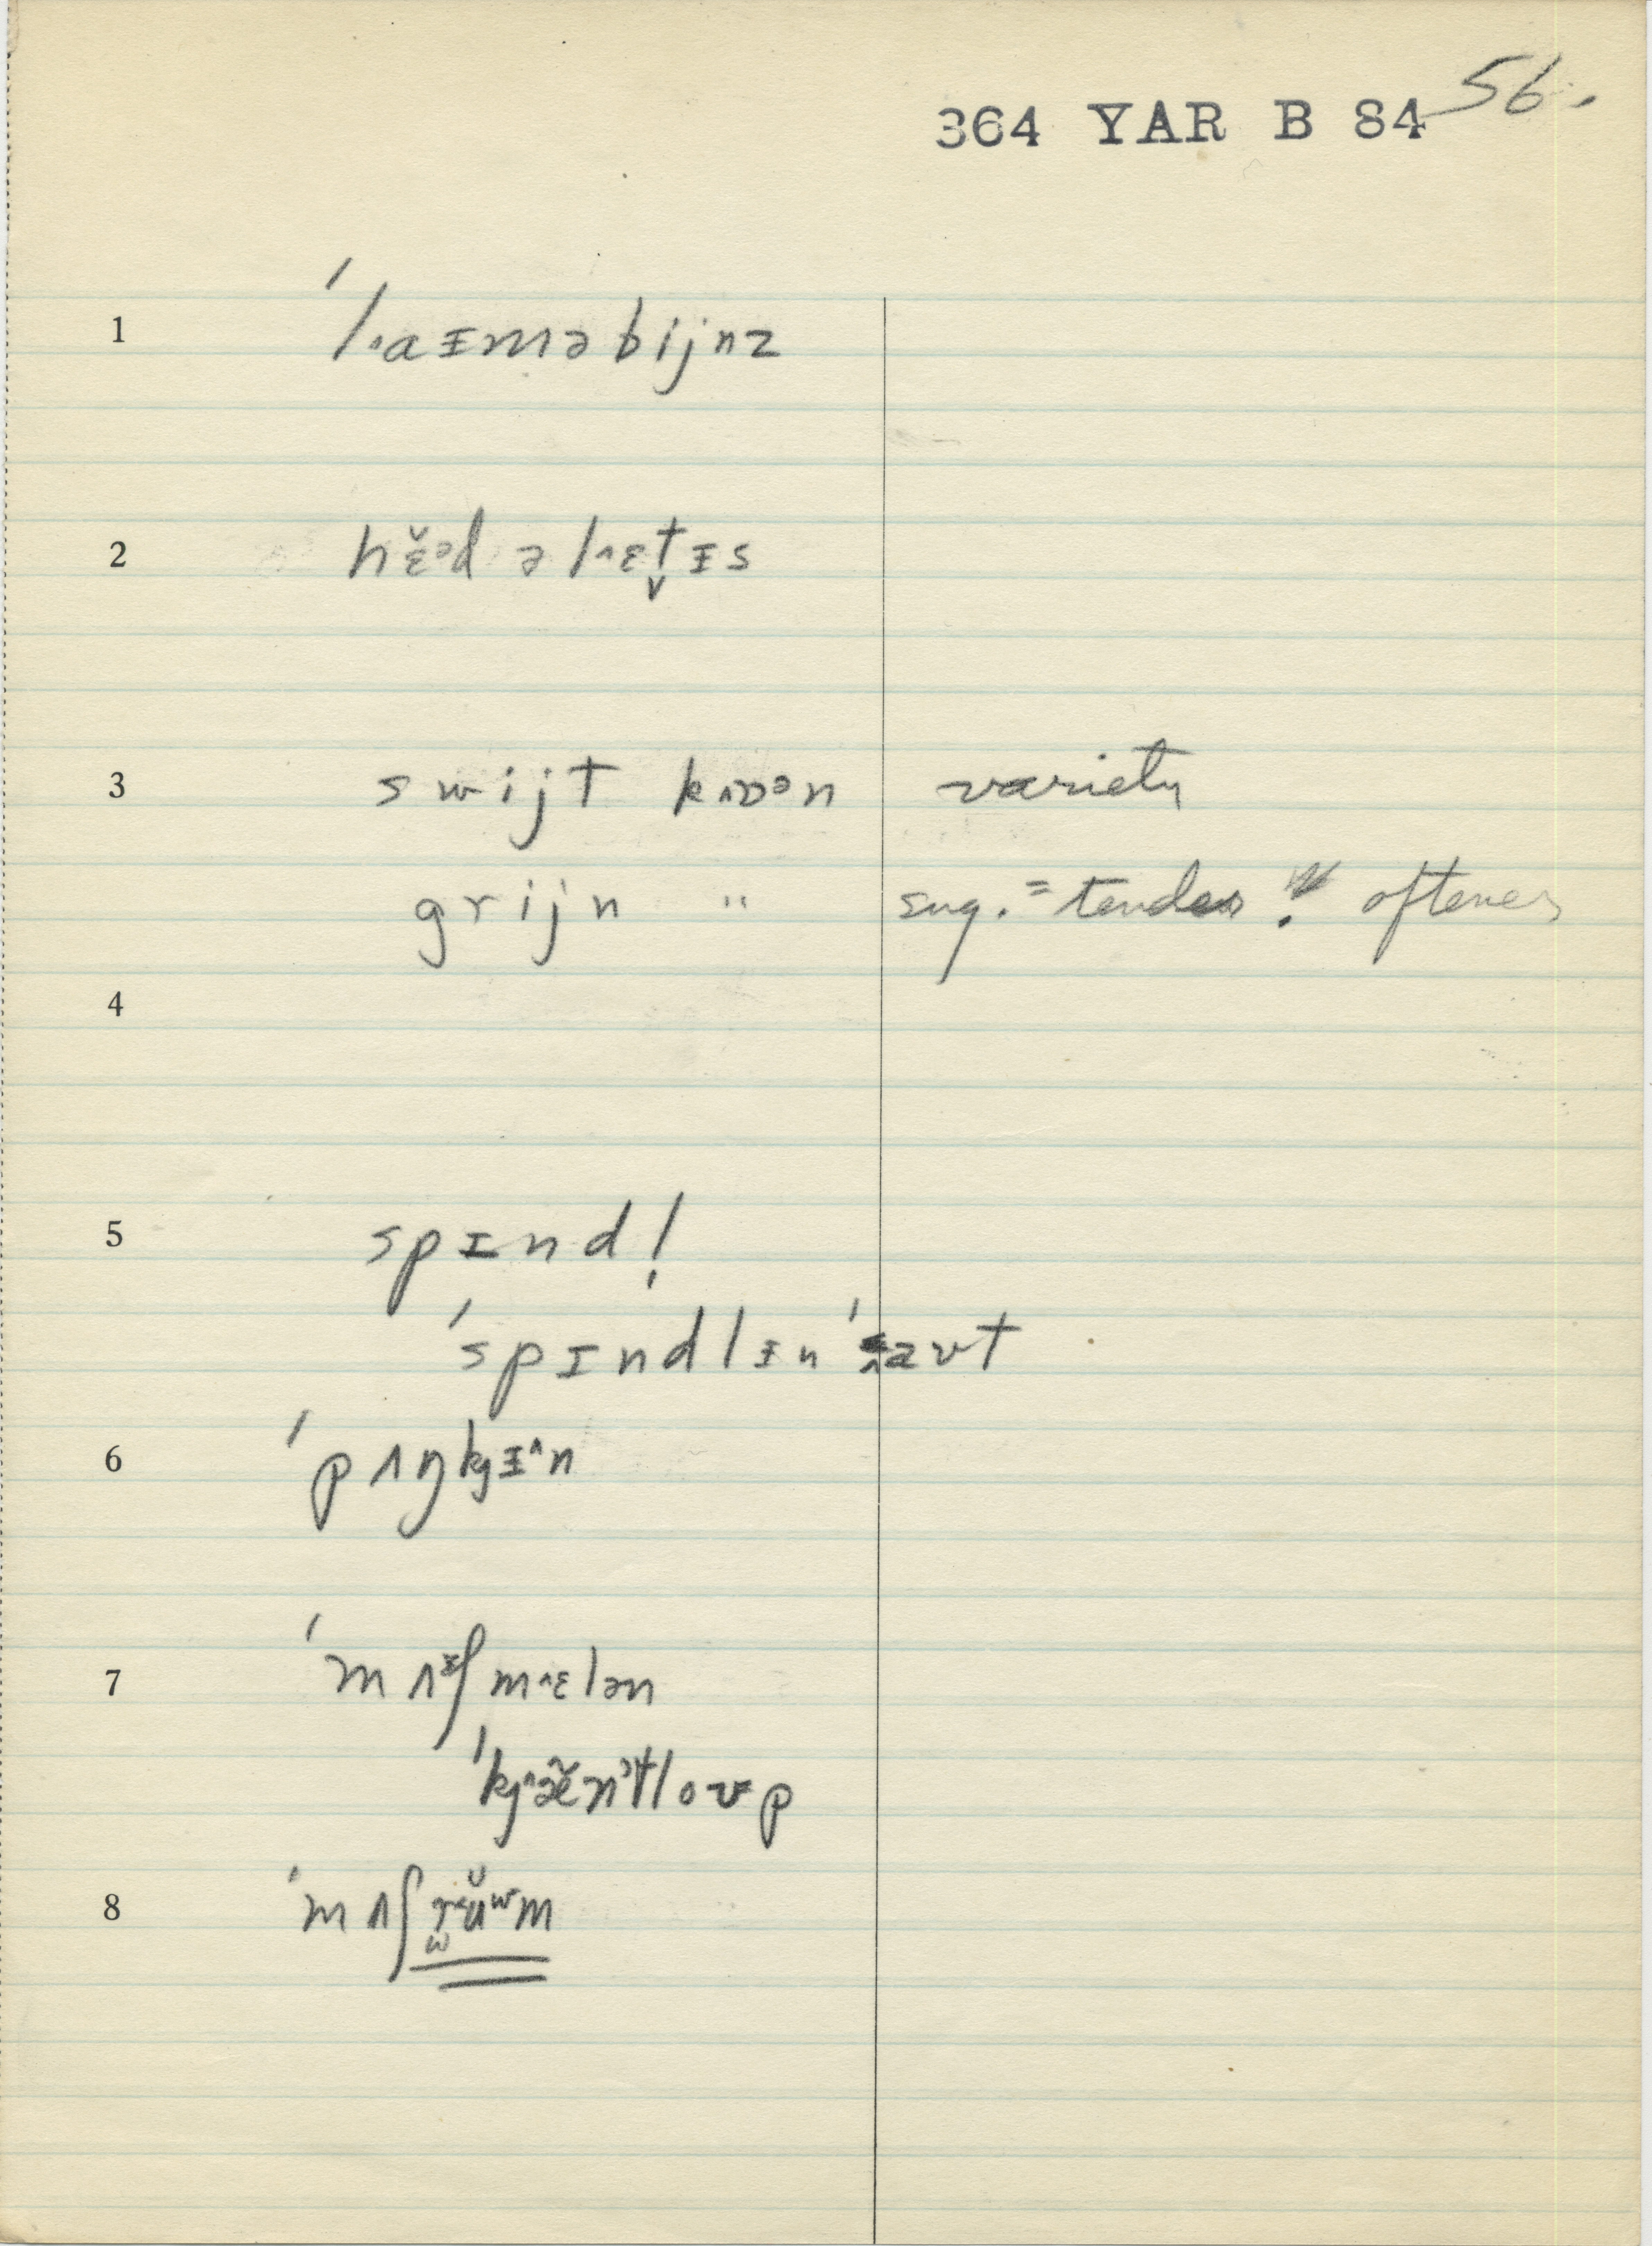 364 YAR B 84 56.
1 ˈl·aɪməbijnz
2 hɛ̆ᵊd ə l˄ɛt̬ɪs
3 swijt k˄ɒᵊn variety
grijn " sug. = tender ! oftener
4
5 spɪnd!
ˈspɪndlɪnˈaʊt
6 ˈpʌŋkɟɪ˄n
7 ˈmʌᶦʃm˄ɛlən
ˈkɟ˄æ̆nᵊtloʊp
8 ˈmʌʃrŭʷm